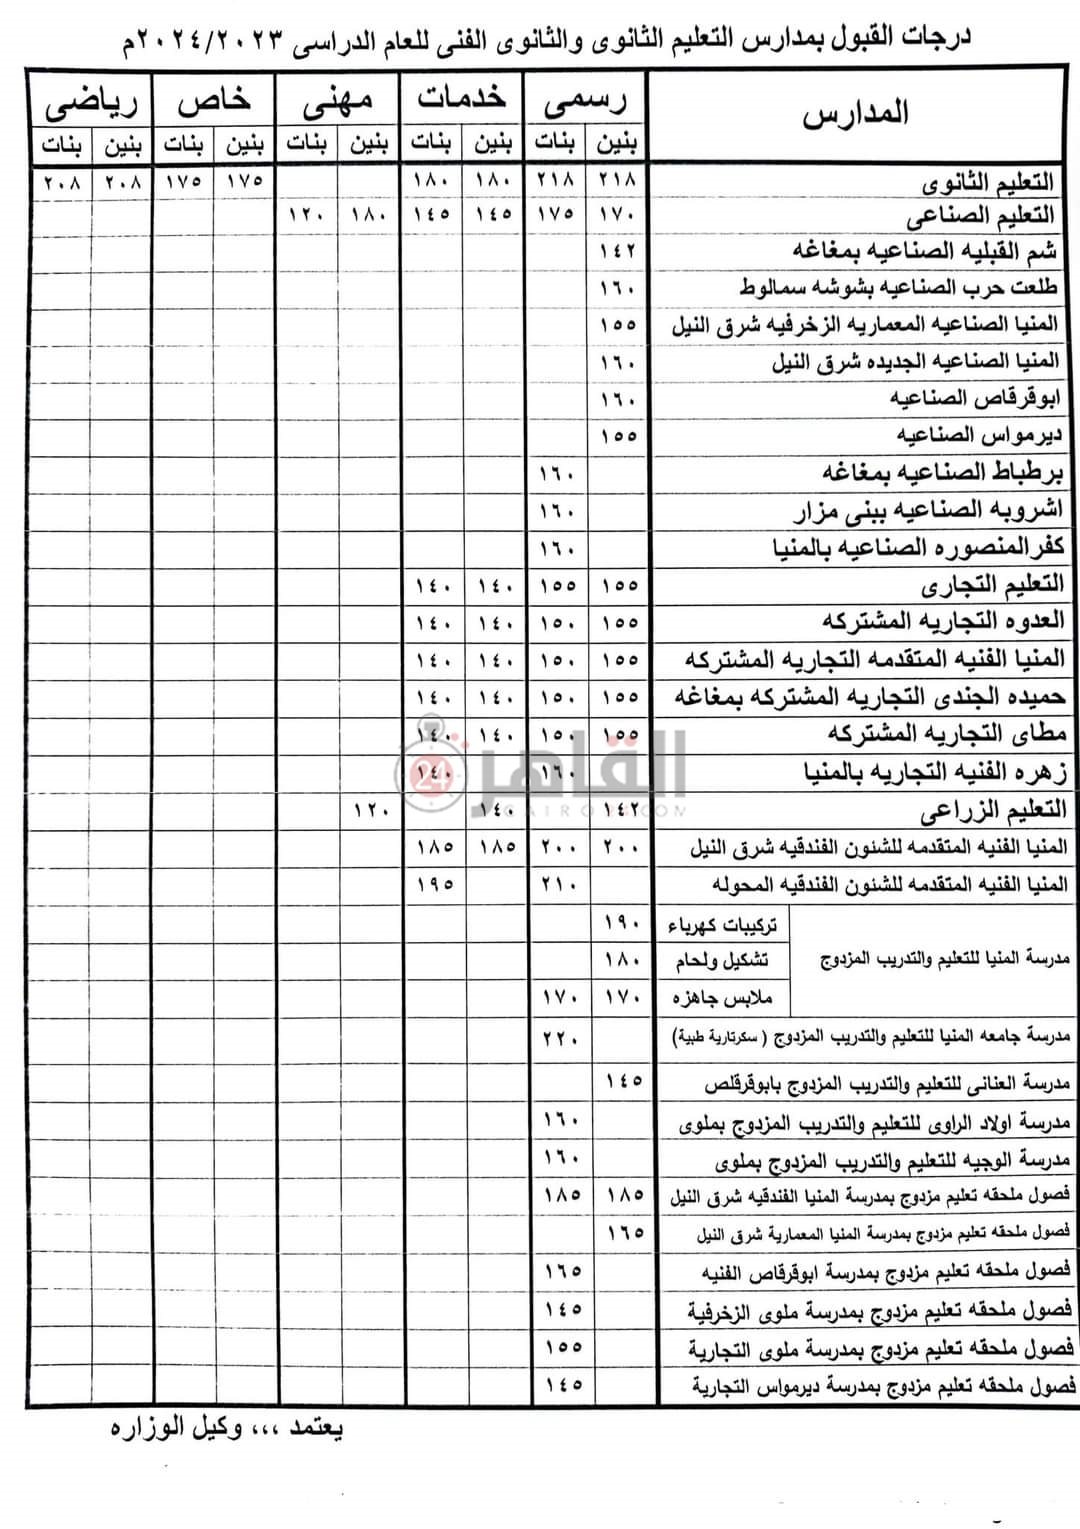 درجات القبول بمدارس التعليم الثانوى والثانوى الفنى للعام الدراسى ٢٠٢٤/٢٠٢٣م
المدارس رسمى خدمات مهنى خاص رياضى
بنين بنات بنين بنات بنين بنات بنين بنات بنين بنات
التعليم الثانوى ٢١٨ ٢١٨ ١٨٠ ١٨٠ ١٧٥ ١٧٥ ٢٠٨ ٢٠٨
التعليم الصناعى ١٧٠ ١٧٥ ١٤٥ ١٤٥ ١٨٠ ١٢٠
شم القبليه الصناعيه بمغاغه ١٤٢
طلعت حرب الصناعيه بشوشه سمالوط ١٦٠
المنيا الصناعيه المعماريه الزخرفيه شرق النيل ١٥٥
المنيا الصناعيه الجديده شرق النيل ١٦٠
ابوقرقاص الصناعيه ١٦٠
ديرمواس الصناعيه ١٥٥
برطباط الصناعيه بمغاغه ١٦٠
اشروبه الصناعيه ببنى مزار ١٦٠
كفرالمنصوره الصناعيه بالمنيا ١٦٠
التعليم التجارى ١٥٥ ١٥٥ ١٤٠ ١٤٠
العدوه التجاريه المشتركه ١٥٥ ١٥٠ ١٤٠ ١٤٠
المنيا الفنيه المتقدمه التجاريه المشتركه ١٥٥ ١٥٠ ١٤٠ ١٤٠
حميده الجندى التجاريه المشتركه بمغاغه ١٥٥ ١٥٠ ١٤٠ ١٤٠
مطاى التجاريه المشتركه ١٥٥ ١٥٠ ١٤٠ ١٤٠
زهره الفنيه التجاريه بالمنيا ١٦٠ ١٤٠
القاهرة 24
CAIRO24.COM
التعليم الزراعى ١٤٢ ١٤٠ ١٢٠
المنيا الفنيه المتقدمه للشئون الفندقيه شرق النيل ٢٠٠ ٢٠٠ ١٨٥ ١٨٥
المنيا الفنيه المتقدمه للشئون الفندقيه المحوله ٢١٠ ١٩٥
مدرسة المنيا للتعليم والتدريب المزدوج
تركيبات كهرباء ١٩٠
تشكيل ولحام ١٨٠
ملابس جاهزه ١٧٠ ١٧٠
مدرسة جامعه المنيا للتعليم والتدريب المزدوج ( سكرتارية طبية) ٢٢٠
مدرسة العنانى للتعليم والتدريب المزدوج بابوقرقلص ١٤٥
مدرسة اولاد الراوى للتعليم والتدريب المزدوج بملوى ١٦٠
مدرسة الوجيه للتعليم والتدريب المزدوج بملوى ١٦٠
فصول ملحقه تعليم مزدوج بمدرسة المنيا الفندقيه شرق النيل ١٨٥ ١٨٥
فصول ملحقه تعليم مزدوج بمدرسة المنيا المعمارية شرق النيل ١٦٥
فصول ملحقه تعليم مزدوج بمدرسة ابوقرقاص الفنيه ١٦٥
فصول ملحقه تعليم مزدوج بمدرسة ملوى الزخرفية ١٤٥
فصول ملحقه تعليم مزدوج بمدرسة ملوى التجارية ١٥٥
فصول ملحقه تعليم مزدوج بمدرسة ديرمواس التجارية ١٤٥
يعتمد ،،، وكيل الوزاره